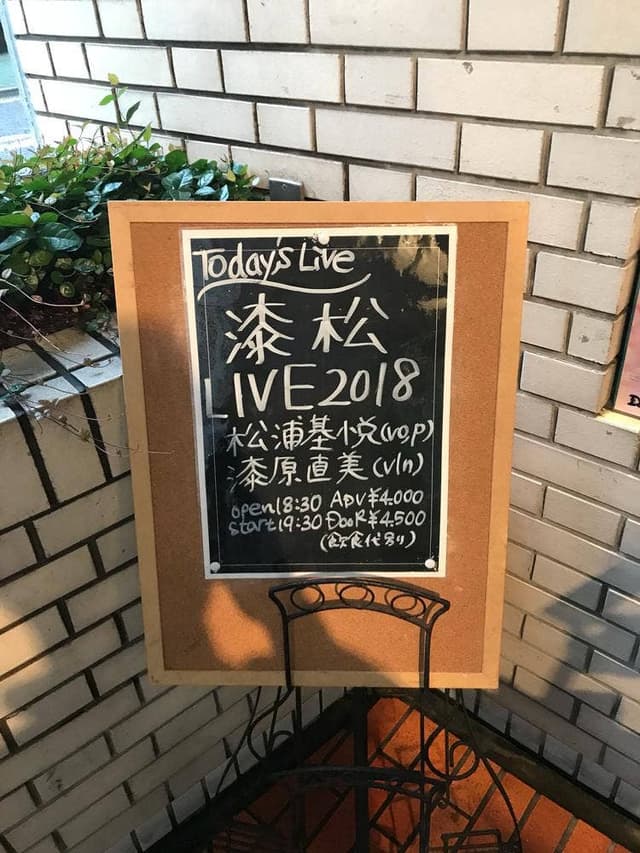 Today's Live
漆松
LIVE2018
松浦基悦(vo,p)
漆原直美(vln)
open18:30 ADV¥4.000
start19:30 DooR¥4.500
(飲食代別り)